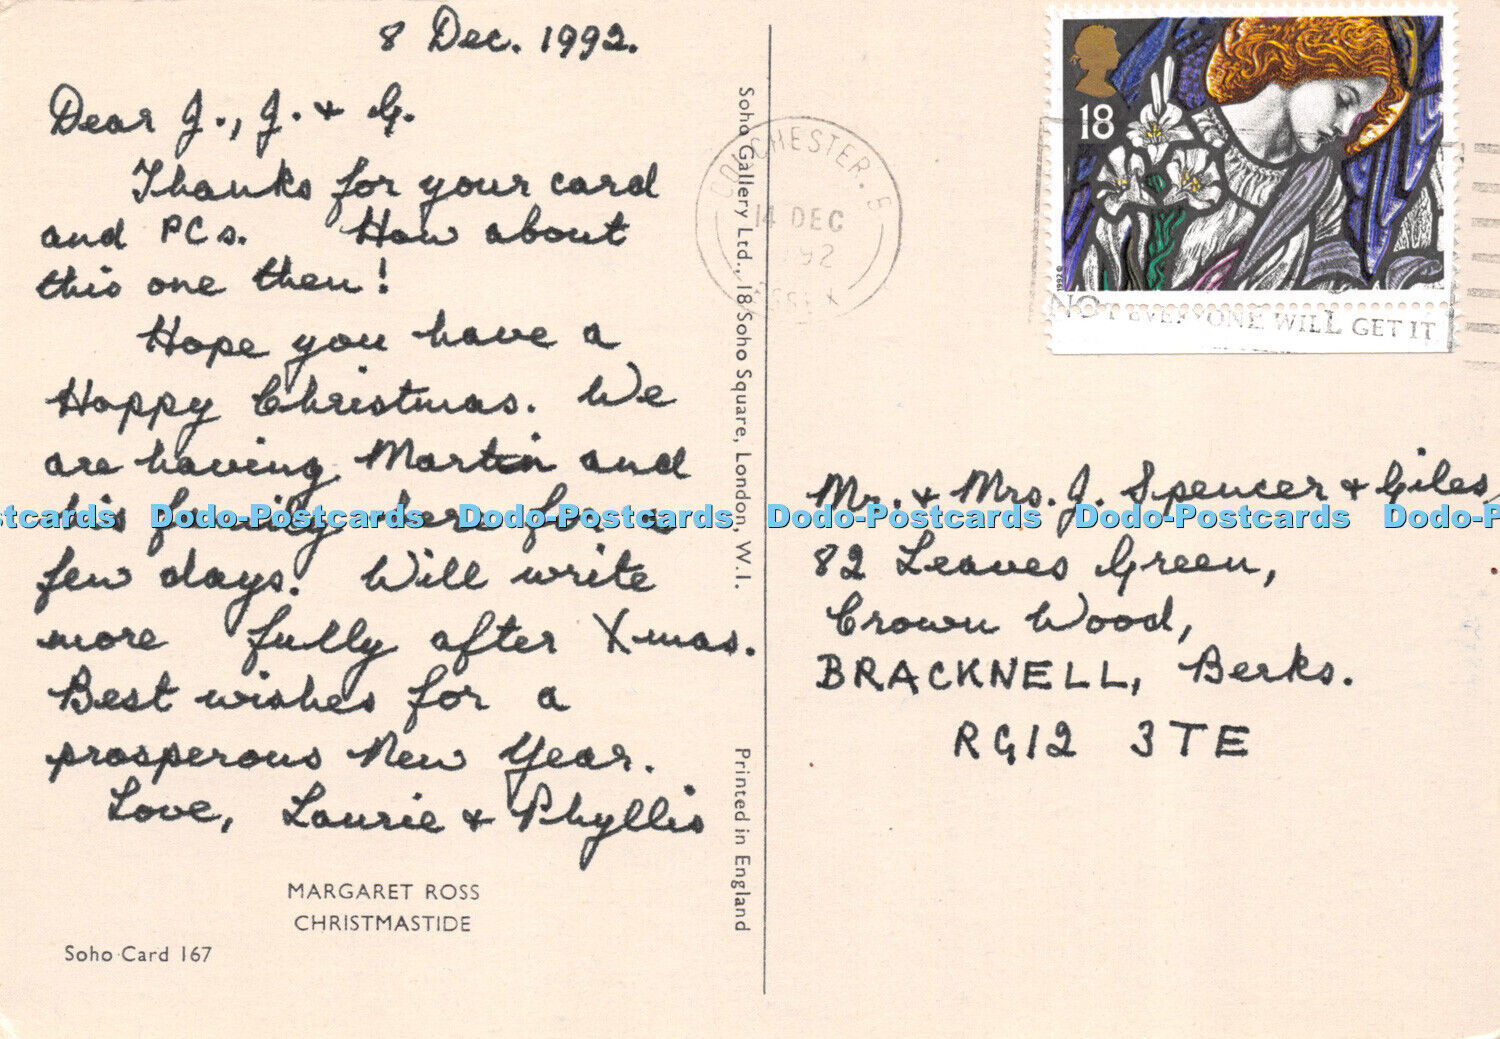 8 Dec. 1992.
Dear J., J. & G.
Thanks for your card
and PCs. How about
this one then!
Hope you have a
Happy Christmas. We
are having Martin and
his family here for a
few days. Will write
more fully after Xmas.
Best wishes for a
prosperous New Year.
Love, Laurie & Phyllis
MARGARET ROSS
CHRISTMASTIDE
Soho Card 167
Soho Gallery Ltd., 18 Soho Square, London, W.1.
Printed in England
18
1992 ©
COLCHESTER.
14 DEC
1992
ESSEX
NOT EVERYONE WILL GET IT
Mr. & Mrs. J. Spencer & Giles,
82 Leaves Green,
Crown Wood,
BRACKNELL, Berks.
RG12 3TE
tcards Dodo-Postcards Dodo-Postcards Dodo-Postcards Dodo-Postcards Dodo-P